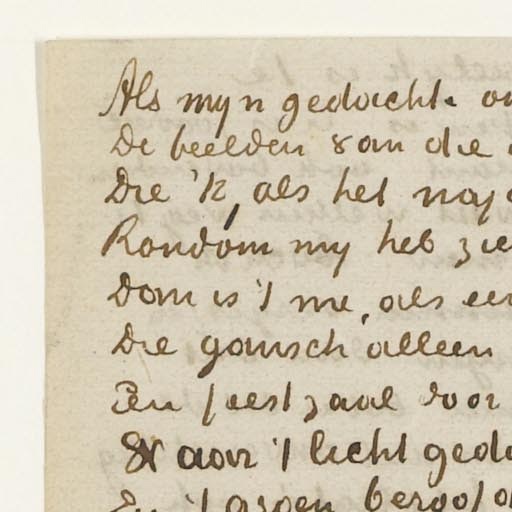 Als myn gedacht
De beelden van die
Die 'k, als het naj
Rondom my heb zie
Dan is 't me, als een
Die gansch alleen
Een feestzaal door
Waar 't licht gedo
En 't groen beroofd